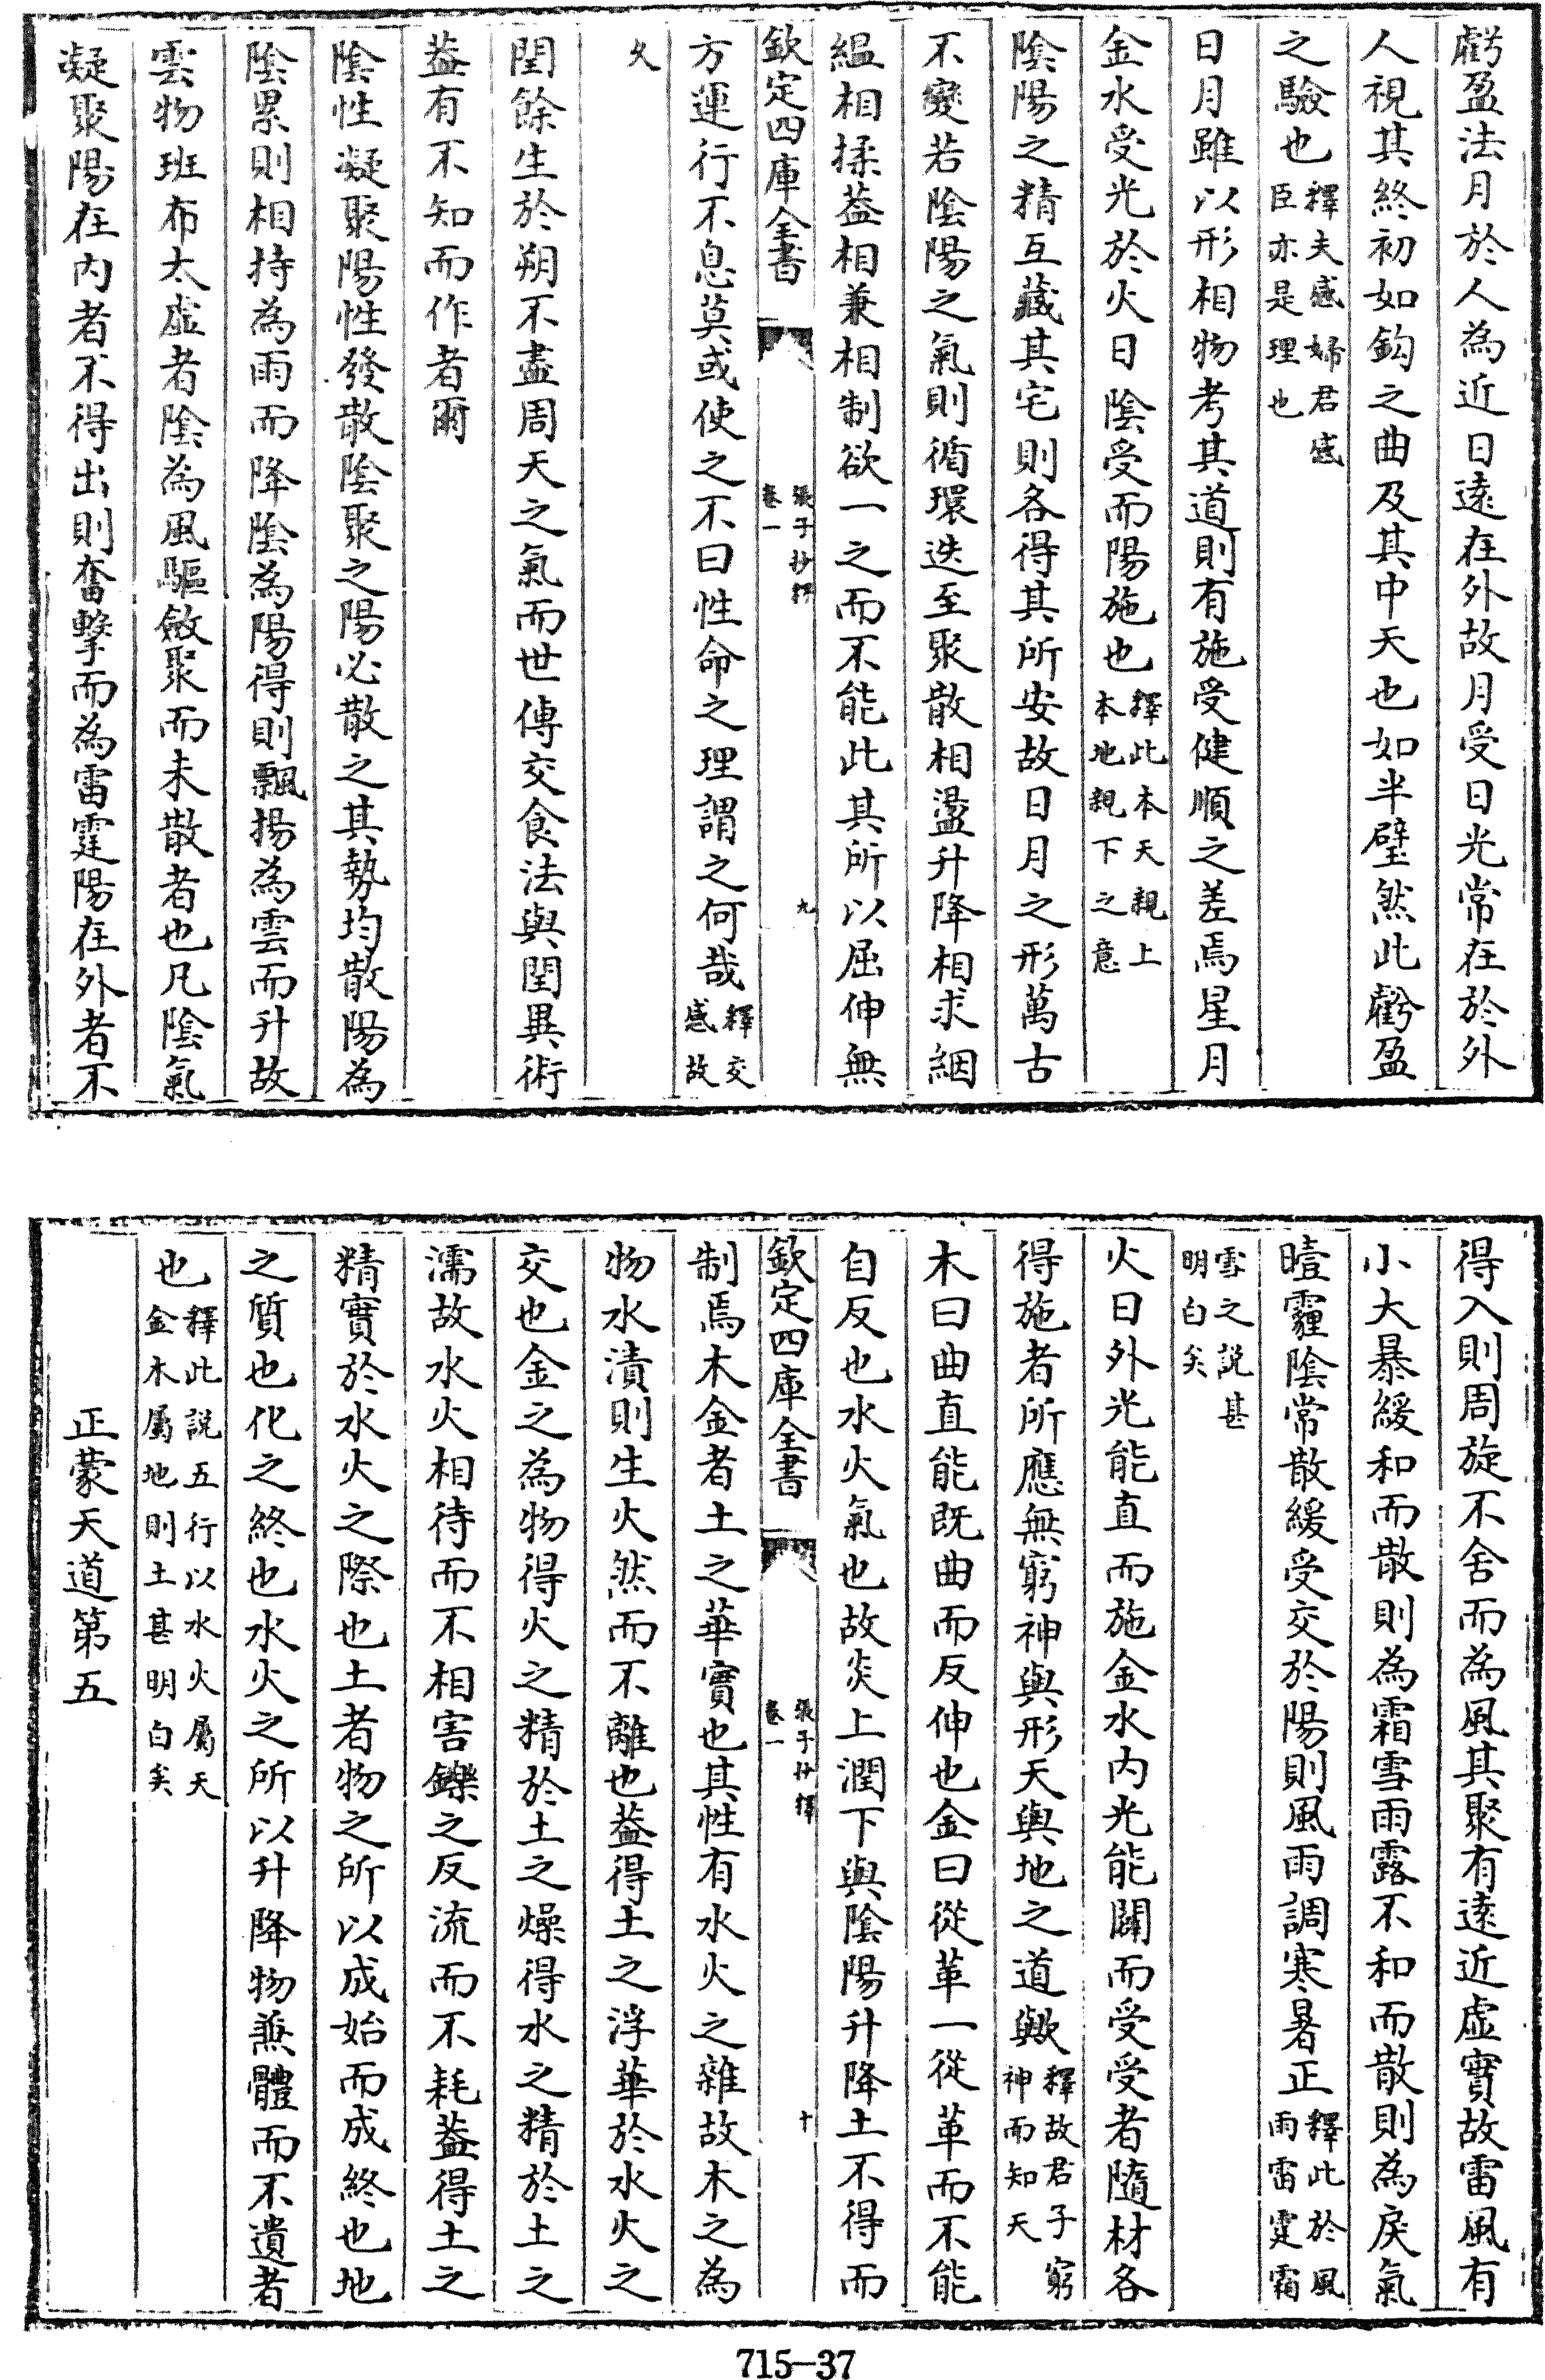 虧盈法月於人為近日逺在外故月受日光常在於外
人視其終初如鈎之曲及其中天也如半璧然此虧盈
之驗也釋夫感婦君感臣亦是理也
日月雖以形相物考其道則有施受健順之差焉星月
金水受光於火日陰受而陽施也釋此本天親上本地親下之意
陰陽之精互藏其宅則各得其所安故日月之形萬古
不變若陰陽之氣則循環迭至聚散相盪升降相求絪
緼相揉葢相兼相制欲一之而不能此其所以屈伸無
欽定四庫全書 張子抄釋 卷一 九
方運行不息莫或使之不曰性命之理謂之何哉釋交感故
久
閏餘生於朔不盡周天之氣而世傳交食法與閏異術
葢有不知而作者爾
陰性凝聚陽性發散陰聚之陽必散之其勢均散陽為
陰累則相持為雨而降陰為陽得則飄揚為雲而升故
雲物班布太虛者陰為風驅斂聚而未散者也凡陰氣
凝聚陽在内者不得出則奮擊而為雷霆陽在外者不
得入則周旋不舍而為風其聚有逺近虛實故雷風有
小大暴緩和而散則為霜雪雨露不和而散則為戾氣
曀霾陰常散緩受交於陽則風雨調寒暑正釋此於風雨雷霆霜
雪之説甚明白矣
火日外光能直而施金水内光能闢而受受者隨材各
得施者所應無窮神與形天與地之道歟釋故君子窮神而知天
木曰曲直能既曲而反伸也金曰從革一從革而不能
自反也水火氣也故炎上潤下與陰陽升降土不得而
欽定四庫全書 張子抄釋 卷一 十
制焉木金者土之華實也其性有水火之雜故木之為
物水漬則生火然而不離也葢得土之浮華於水火之
交也金之為物得火之精於土之燥得水之精於土之
濡故水火相待而不相害鑠之反流而不耗葢得土之
精實於水火之際也土者物之所以成始而成終也地
之質也化之終也水火之所以升降物兼體而不遺者
也釋此説五行以水火屬天金木屬地則土甚明白矣
正蒙天道第五
715-37